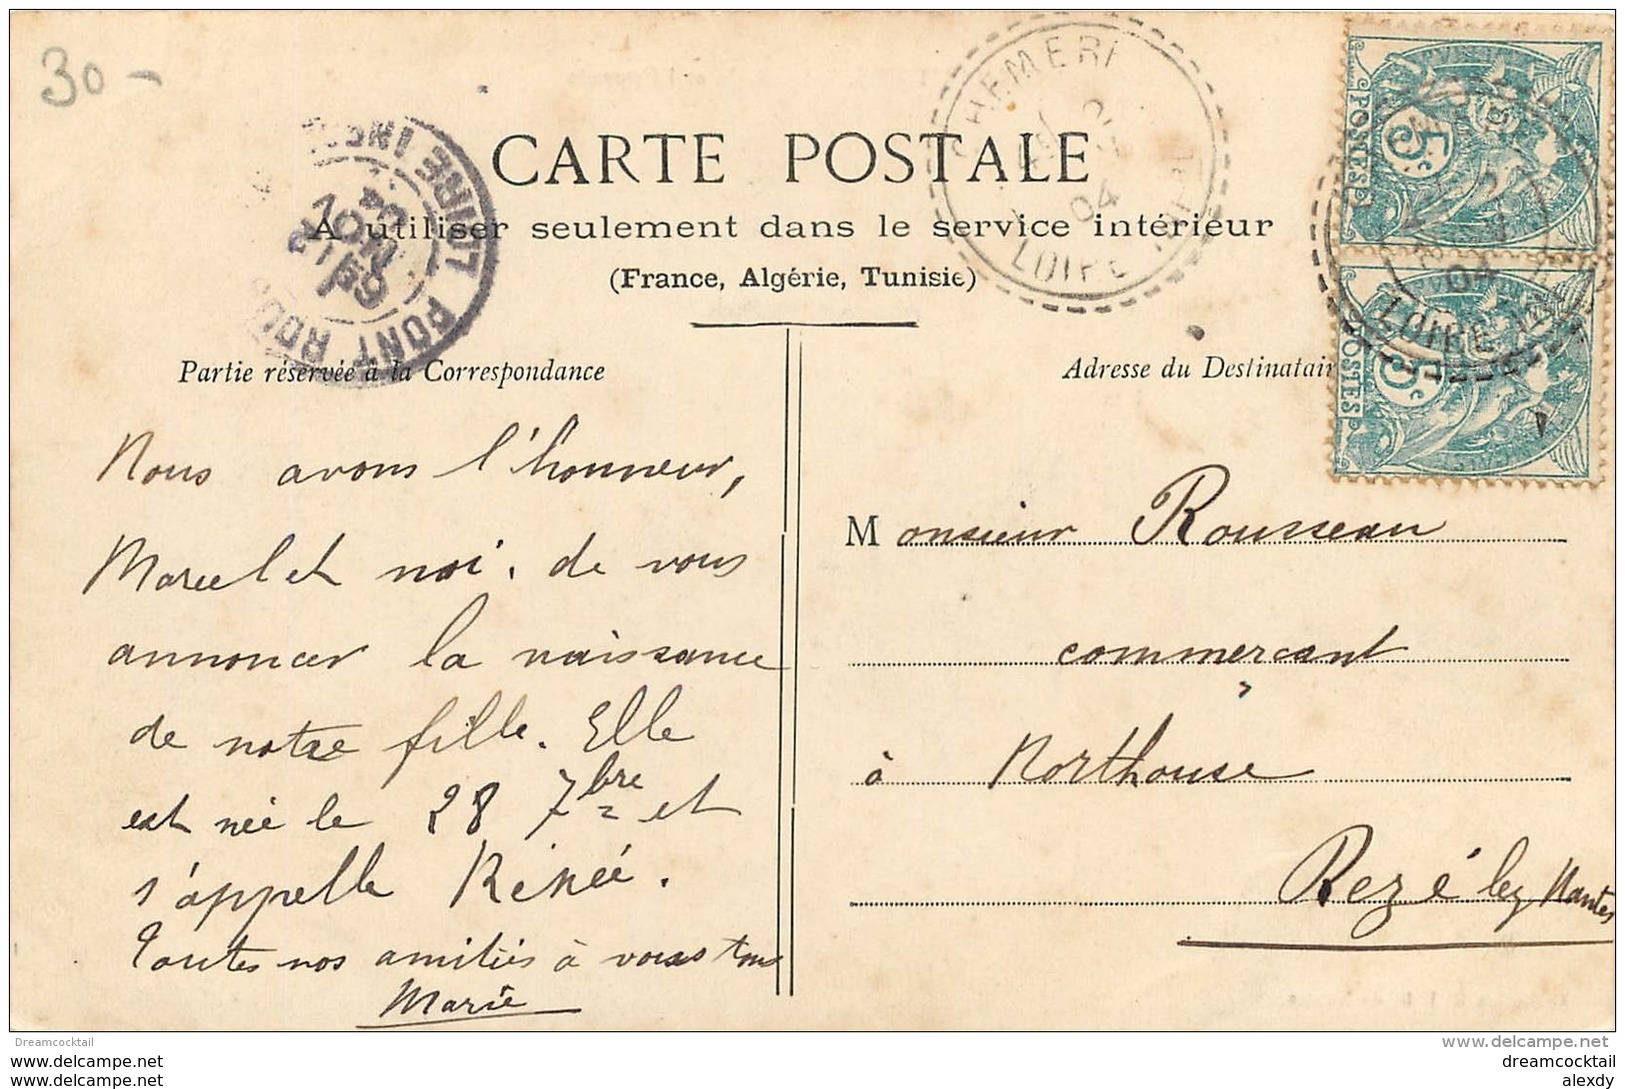 30-
CARTE POSTALE
A utiliser seulement dans le service intérieur
(France, Algérie, Tunisie)
CHEMERÉ
04
LOIRE INFRE
PONT ROUSSEAU
LOIRE INFRE
POSTES
5c
POSTES
5c
04
LOIRE INFRE
Partie réservée à la Correspondance
Adresse du Destinatair
Nous avons l'honneur,
Marcel et moi. de vous
annoncer la naissance
de notre fille. Elle
est née le 28 7bre et
s'appelle Rénéé.
Toutes nos amitiés à vous tous
Marie
Monsieur Rousseau
commerçant
à Northouse
Rezé ley Nantes
Dreamcocktail
www.delcampe.net
dreamcocktail
alexdy
www.delcampe.net
dreamcocktail
alexdy